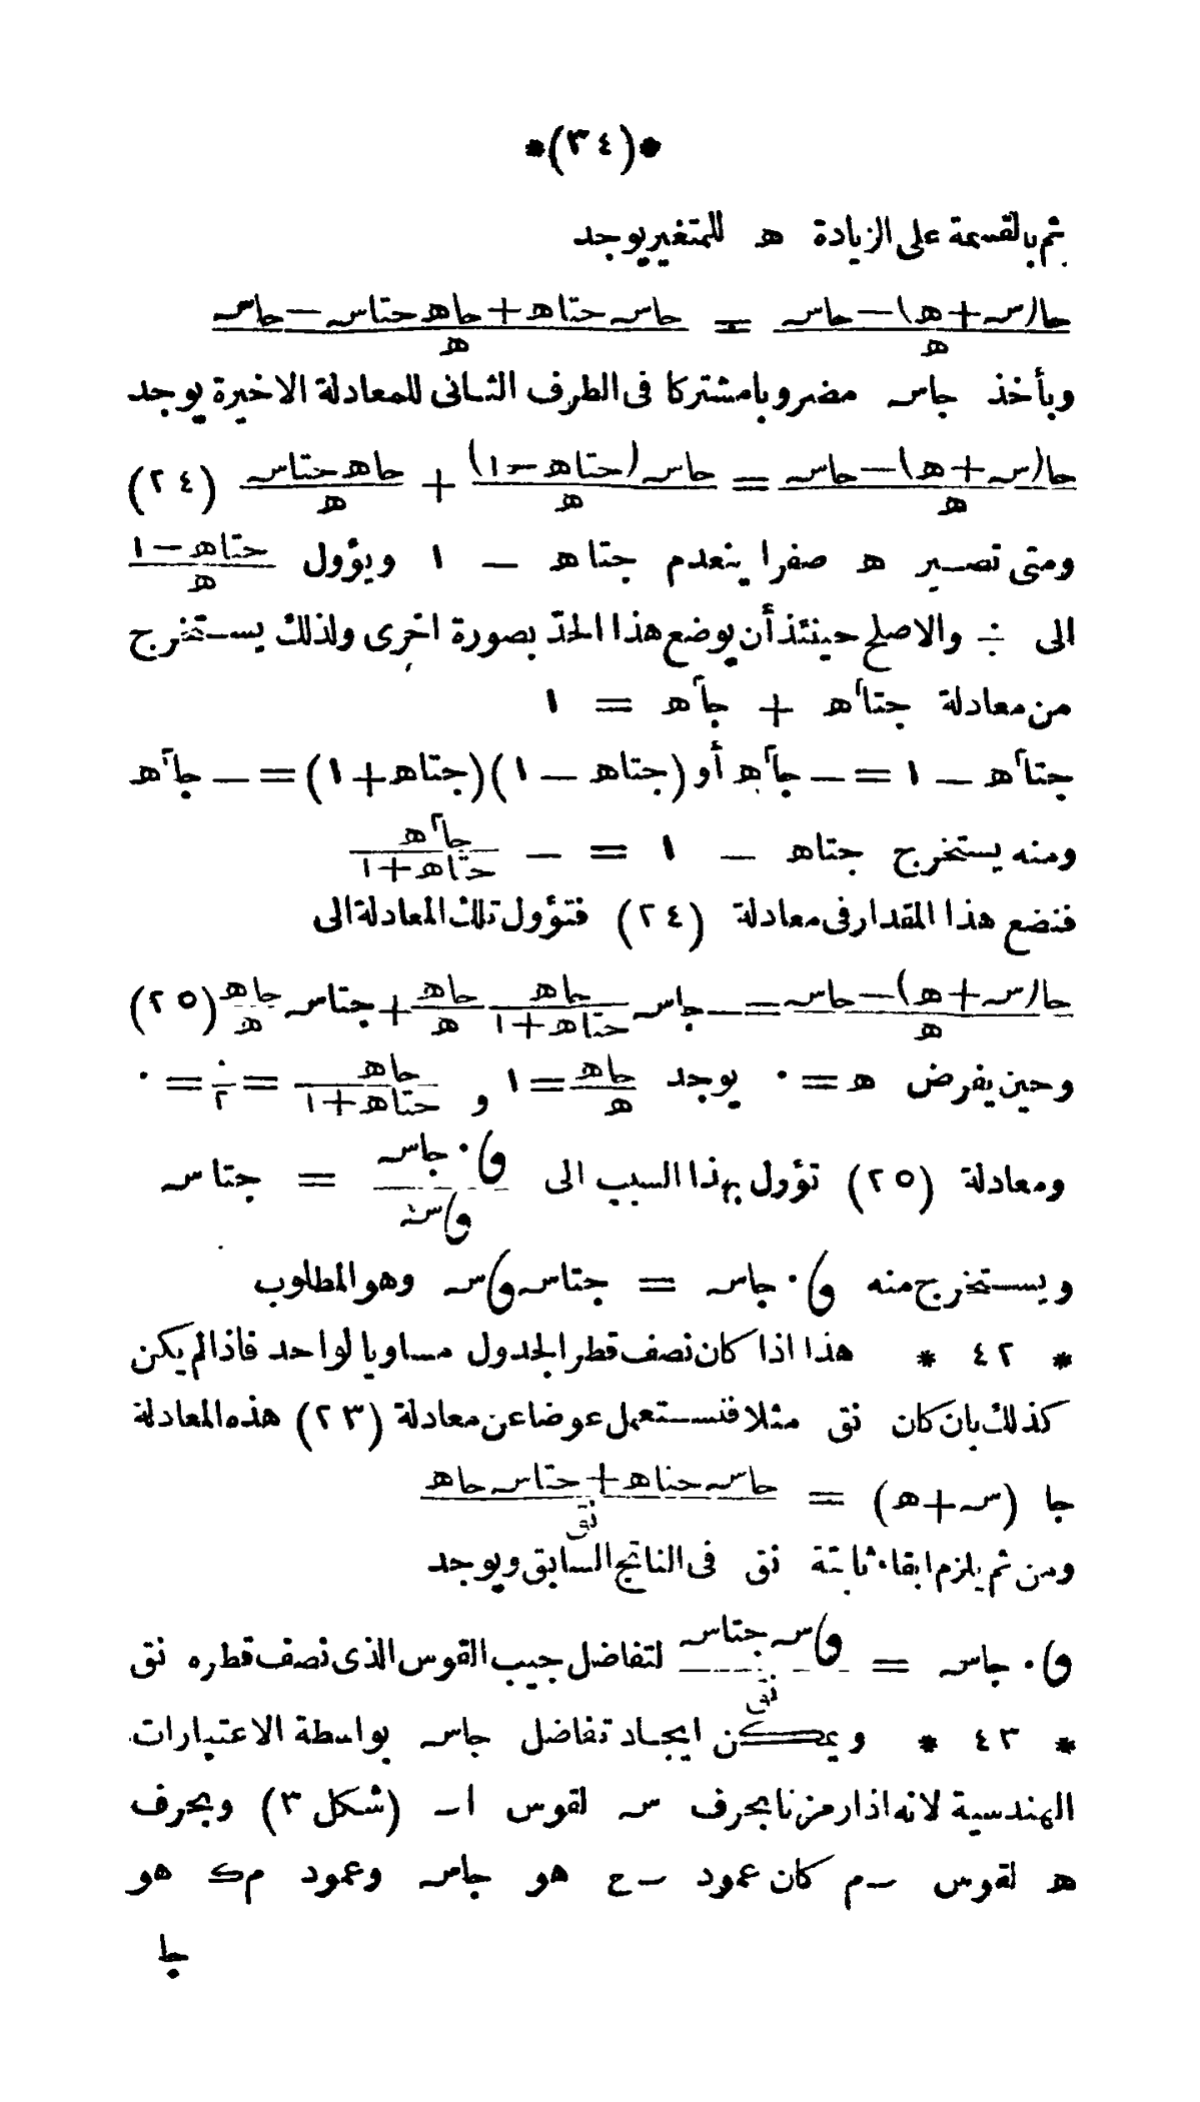 *(٣٤)*
ثم بالقسمة على الزيادة ھ للمتغير يوجد
جا(س+ھ)−جاس / ھ = جاس جتاھ+جاھ جتاس−جاس / ھ
وبأخذ جاس مضروبا مشتركا فى الطرف الثانى للمعادلة الاخيرة يوجد
جا(س+ھ)−جاس / ھ = جاس(جتاھ−١) / ھ + جاھ جتاس / ھ (٢٤)
ومتى تصير ھ صفرا ينعدم جتاھ − ١ ويؤول جتاھ−١ / ھ
الى ٠/٠ والاصلح حينئذ أن يوضع هذا الحدّ بصورة اخرى ولذلك يستخرج
من معادلة جتا٢ھ + جا٢ھ = ١
جتا٢ھ − ١ = − جا٢ھ أو (جتاھ − ١)(جتاھ+١) = − جا٢ھ
ومنه يستخرج جتاھ − ١ = − جا٢ھ / جتاھ+١
فنضع هذا المقدار فى معادلة (٢٤) فتؤول تلك المعادلة الى
جا(س+ھ)−جاس / ھ = − جاس جاھ / جتاھ+١ جاھ / ھ + جتاس جاھ / ھ (٢٥)
وحين يفرض ھ = ٠ يوجد جاھ / ھ = ١ و جاھ / جتاھ+١ = ٠/٢ = ٠
ومعادلة (٢٥) تؤول بهذا السبب الى ﻭ٠ جاس / ﻭس = جتاس
ويستخرج منه ﻭ٠ جاس = جتاس ﻭس وهو المطلوب
* ٤٢ * هذا اذا كان نصف قطر الجدول مساويا لواحد فاذا لم يكن
كذلك بان كان نق مثلا فنستعمل عوضا عن معادلة (٢٣) هذه المعادلة
جا (س+ھ) = جاس جتاھ+جتاس جاھ / نق
ومن ثم يلزم ابقاء ثابتة نق فى الناتج السابق ويوجد
ﻭ٠ جاس = ﻭس جتاس / نق لتفاضل جيب القوس الذى نصف قطره نق
* ٤٣ * ويمكن ايجاد تفاضل جاس بواسطة الاعتبارات
الهندسية لانه اذا رمزنا بحرف س لقوس اٮ (شكل ٣) وبحرف
ھ لقوس ٮم كان عمود ٮح هو جاس وعمود مك هو
جا